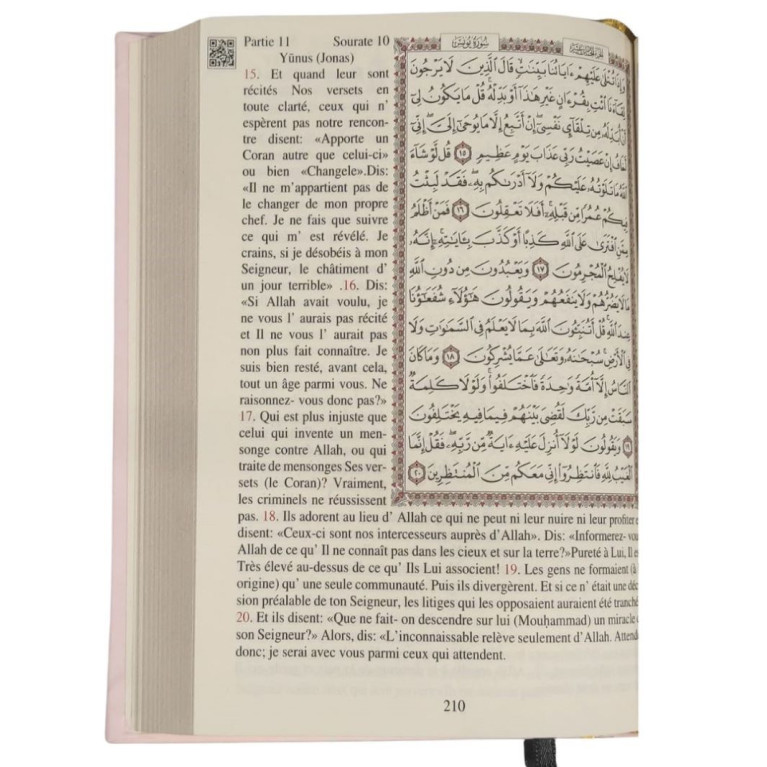 Partie 11 Sourate 10
Yūnus (Jonas)
15. Et quand leur sont
récités Nos versets en
toute clarté, ceux qui n'
espèrent pas notre rencon-
tre disent: «Apporte un
Coran autre que celui-ci»
ou bien «Changele».Dis:
«Il ne m'appartient pas de
le changer de mon propre
chef. Je ne fais que suivre
ce qui m' est révélé. Je
crains, si je désobéis à mon
Seigneur, le châtiment d'
un jour terrible» .16. Dis:
«Si Allah avait voulu, je
ne vous l' aurais pas récité
et Il ne vous l' aurait pas
non plus fait connaître. Je
suis bien resté, avant cela,
tout un âge parmi vous. Ne
raisonnez- vous donc pas?»
17. Qui est plus injuste que
celui qui invente un men-
songe contre Allah, ou qui
traite de mensonges Ses ver-
sets (le Coran)? Vraiment,
les criminels ne réussissent
pas. 18. Ils adorent au lieu d' Allah ce qui ne peut ni leur nuire ni leur profiter
disent: «Ceux-ci sont nos intercesseurs auprès d'Allah». Dis: «Informerez- vou
Allah de ce qu' Il ne connaît pas dans les cieux et sur la terre?»Pureté à Lui, Il e
Très élevé au-dessus de ce qu' Ils Lui associent! 19. Les gens ne formaient (à
origine) qu' une seule communauté. Puis ils divergèrent. Et si ce n' était une déc
sion préalable de ton Seigneur, les litiges qui les opposaient auraient été tranché
20. Et ils disent: «Que ne fait- on descendre sur lui (Mouḥammad) un miracle
son Seigneur?» Alors, dis: «L'inconnaissable relève seulement d'Allah. Attend
donc; je serai avec vous parmi ceux qui attendent.
سورة يونس
وَإِذَا تُتْلَىٰ عَلَيْهِمْ ءَايَاتُنَا بَيِّنَٰتٍ قَالَ ٱلَّذِينَ لَا يَرْجُونَ
لِقَآءَنَا ٱئْتِ بِقُرْءَانٍ غَيْرِ هَٰذَآ أَوْ بَدِّلْهُ قُلْ مَا يَكُونُ لِىٓ
أَنْ أُبَدِّلَهُۥ مِن تِلْقَآئِ نَفْسِىٓ إِنْ أَتَّبِعُ إِلَّا مَا يُوحَىٰٓ إِلَىَّ إِنِّىٓ
أَخَافُ إِنْ عَصَيْتُ رَبِّى عَذَابَ يَوْمٍ عَظِيمٍ ١٥ قُل لَّوْ شَآءَ
ٱللَّهُ مَا تَلَوْتُهُۥ عَلَيْكُمْ وَلَآ أَدْرَىٰكُم بِهِۦ فَقَدْ لَبِثْتُ
فِيكُمْ عُمُرًا مِّن قَبْلِهِۦٓ أَفَلَا تَعْقِلُونَ ١٦ فَمَنْ أَظْلَمُ
مِمَّنِ ٱفْتَرَىٰ عَلَى ٱللَّهِ كَذِبًا أَوْ كَذَّبَ بِـَٔايَٰتِهِۦٓ إِنَّهُۥ
لَا يُفْلِحُ ٱلْمُجْرِمُونَ ١٧ وَيَعْبُدُونَ مِن دُونِ ٱللَّهِ
مَا لَا يَضُرُّهُمْ وَلَا يَنفَعُهُمْ وَيَقُولُونَ هَٰٓؤُلَآءِ شُفَعَٰٓؤُنَا
عِندَ ٱللَّهِ قُلْ أَتُنَبِّـُٔونَ ٱللَّهَ بِمَا لَا يَعْلَمُ فِى ٱلسَّمَٰوَٰتِ وَلَا
فِى ٱلْأَرْضِ سُبْحَٰنَهُۥ وَتَعَٰلَىٰ عَمَّا يُشْرِكُونَ ١٨ وَمَا كَانَ
ٱلنَّاسُ إِلَّآ أُمَّةً وَٰحِدَةً فَٱخْتَلَفُوا۟ وَلَوْلَا كَلِمَةٌ
سَبَقَتْ مِن رَّبِّكَ لَقُضِىَ بَيْنَهُمْ فِيمَا فِيهِ يَخْتَلِفُونَ
١٩ وَيَقُولُونَ لَوْلَآ أُنزِلَ عَلَيْهِ ءَايَةٌ مِّن رَّبِّهِۦ فَقُلْ إِنَّمَا
ٱلْغَيْبُ لِلَّهِ فَٱنتَظِرُوٓا۟ إِنِّى مَعَكُم مِّنَ ٱلْمُنتَظِرِينَ ٢٠
210